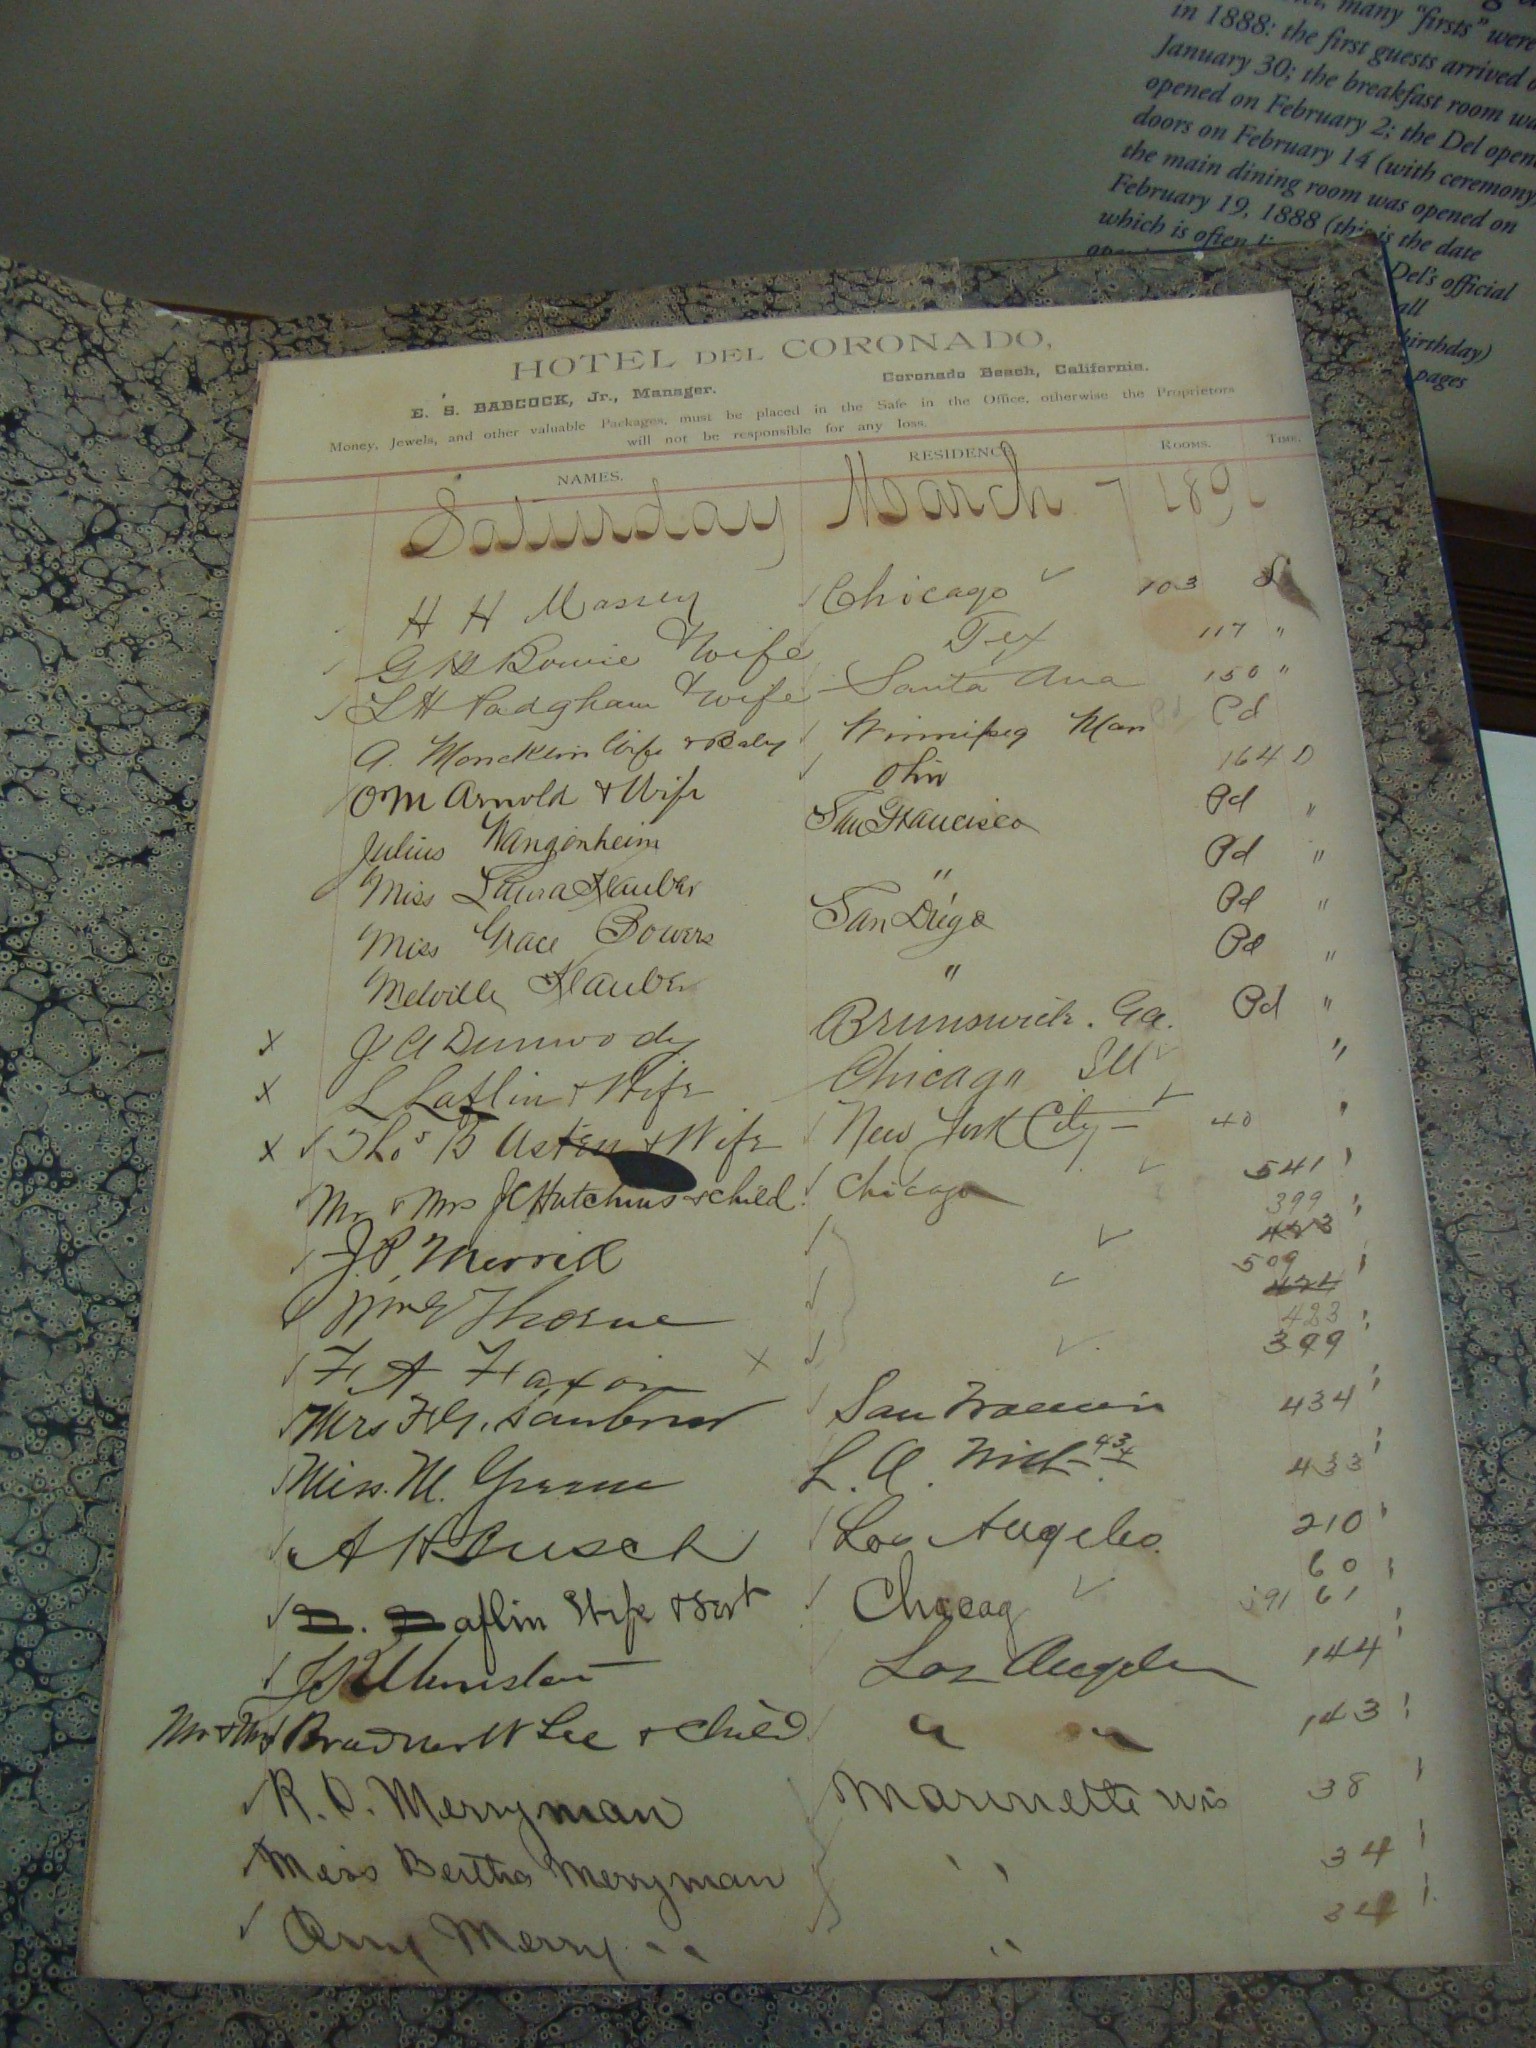 many "firsts" were
in 1888: the first guests arrived o
January 30; the breakfast room wa
opened on February 2; the Del open
doors on February 14 (with ceremony)
the main dining room was opened on
February 19, 1888 (this is the date
which is often
Del's official
all
birthday)
pages
HOTEL DEL CORONADO,
E. S. BABCOCK, Jr., Manager. Coronado Beach, California.
Money, Jewels, and other valuable Packages, must be placed in the Safe in the Office, otherwise the Proprietors
will not be responsible for any loss.
NAMES. RESIDENCE ROOMS. TIME.
Saturday March 7 1891
H H Massey Chicago 103
Bowie & Wife Tex 117 "
L H Padgham & wife Santa Ana 150 "
A. Wife & Baby Winnipeg Man Pd
O M Arnold & Wife Ohio 164 D
Julius Wangenheim San Francisco Pd "
Miss Laura Klauber " Pd "
Miss Grace Bowers San Diego Pd "
Melville Klauber " Pd "
x J. A Dunwody Brunswick. Ga. Pd "
x L Laflin & Wife Chicago Ill "
x Thos B Asten & Wife New York City 40
Mr & Mrs J C Hutchins & child. Chicago 541
J. P. Merrill 399 423
Thorne 509 424
F A Faxon x 423 399
Mrs San 434
Miss. M. Greene L. A. 434 433
A H Busch Los Angeles. 210
Laflin Wife & Chicag 60 61
Los Angeles 144
Mr & Mrs Bradner W Lee & Child " " 143
R. O. Merryman Marinette Wis 38
Miss Bertha Merryman " 34
Merry " " 34